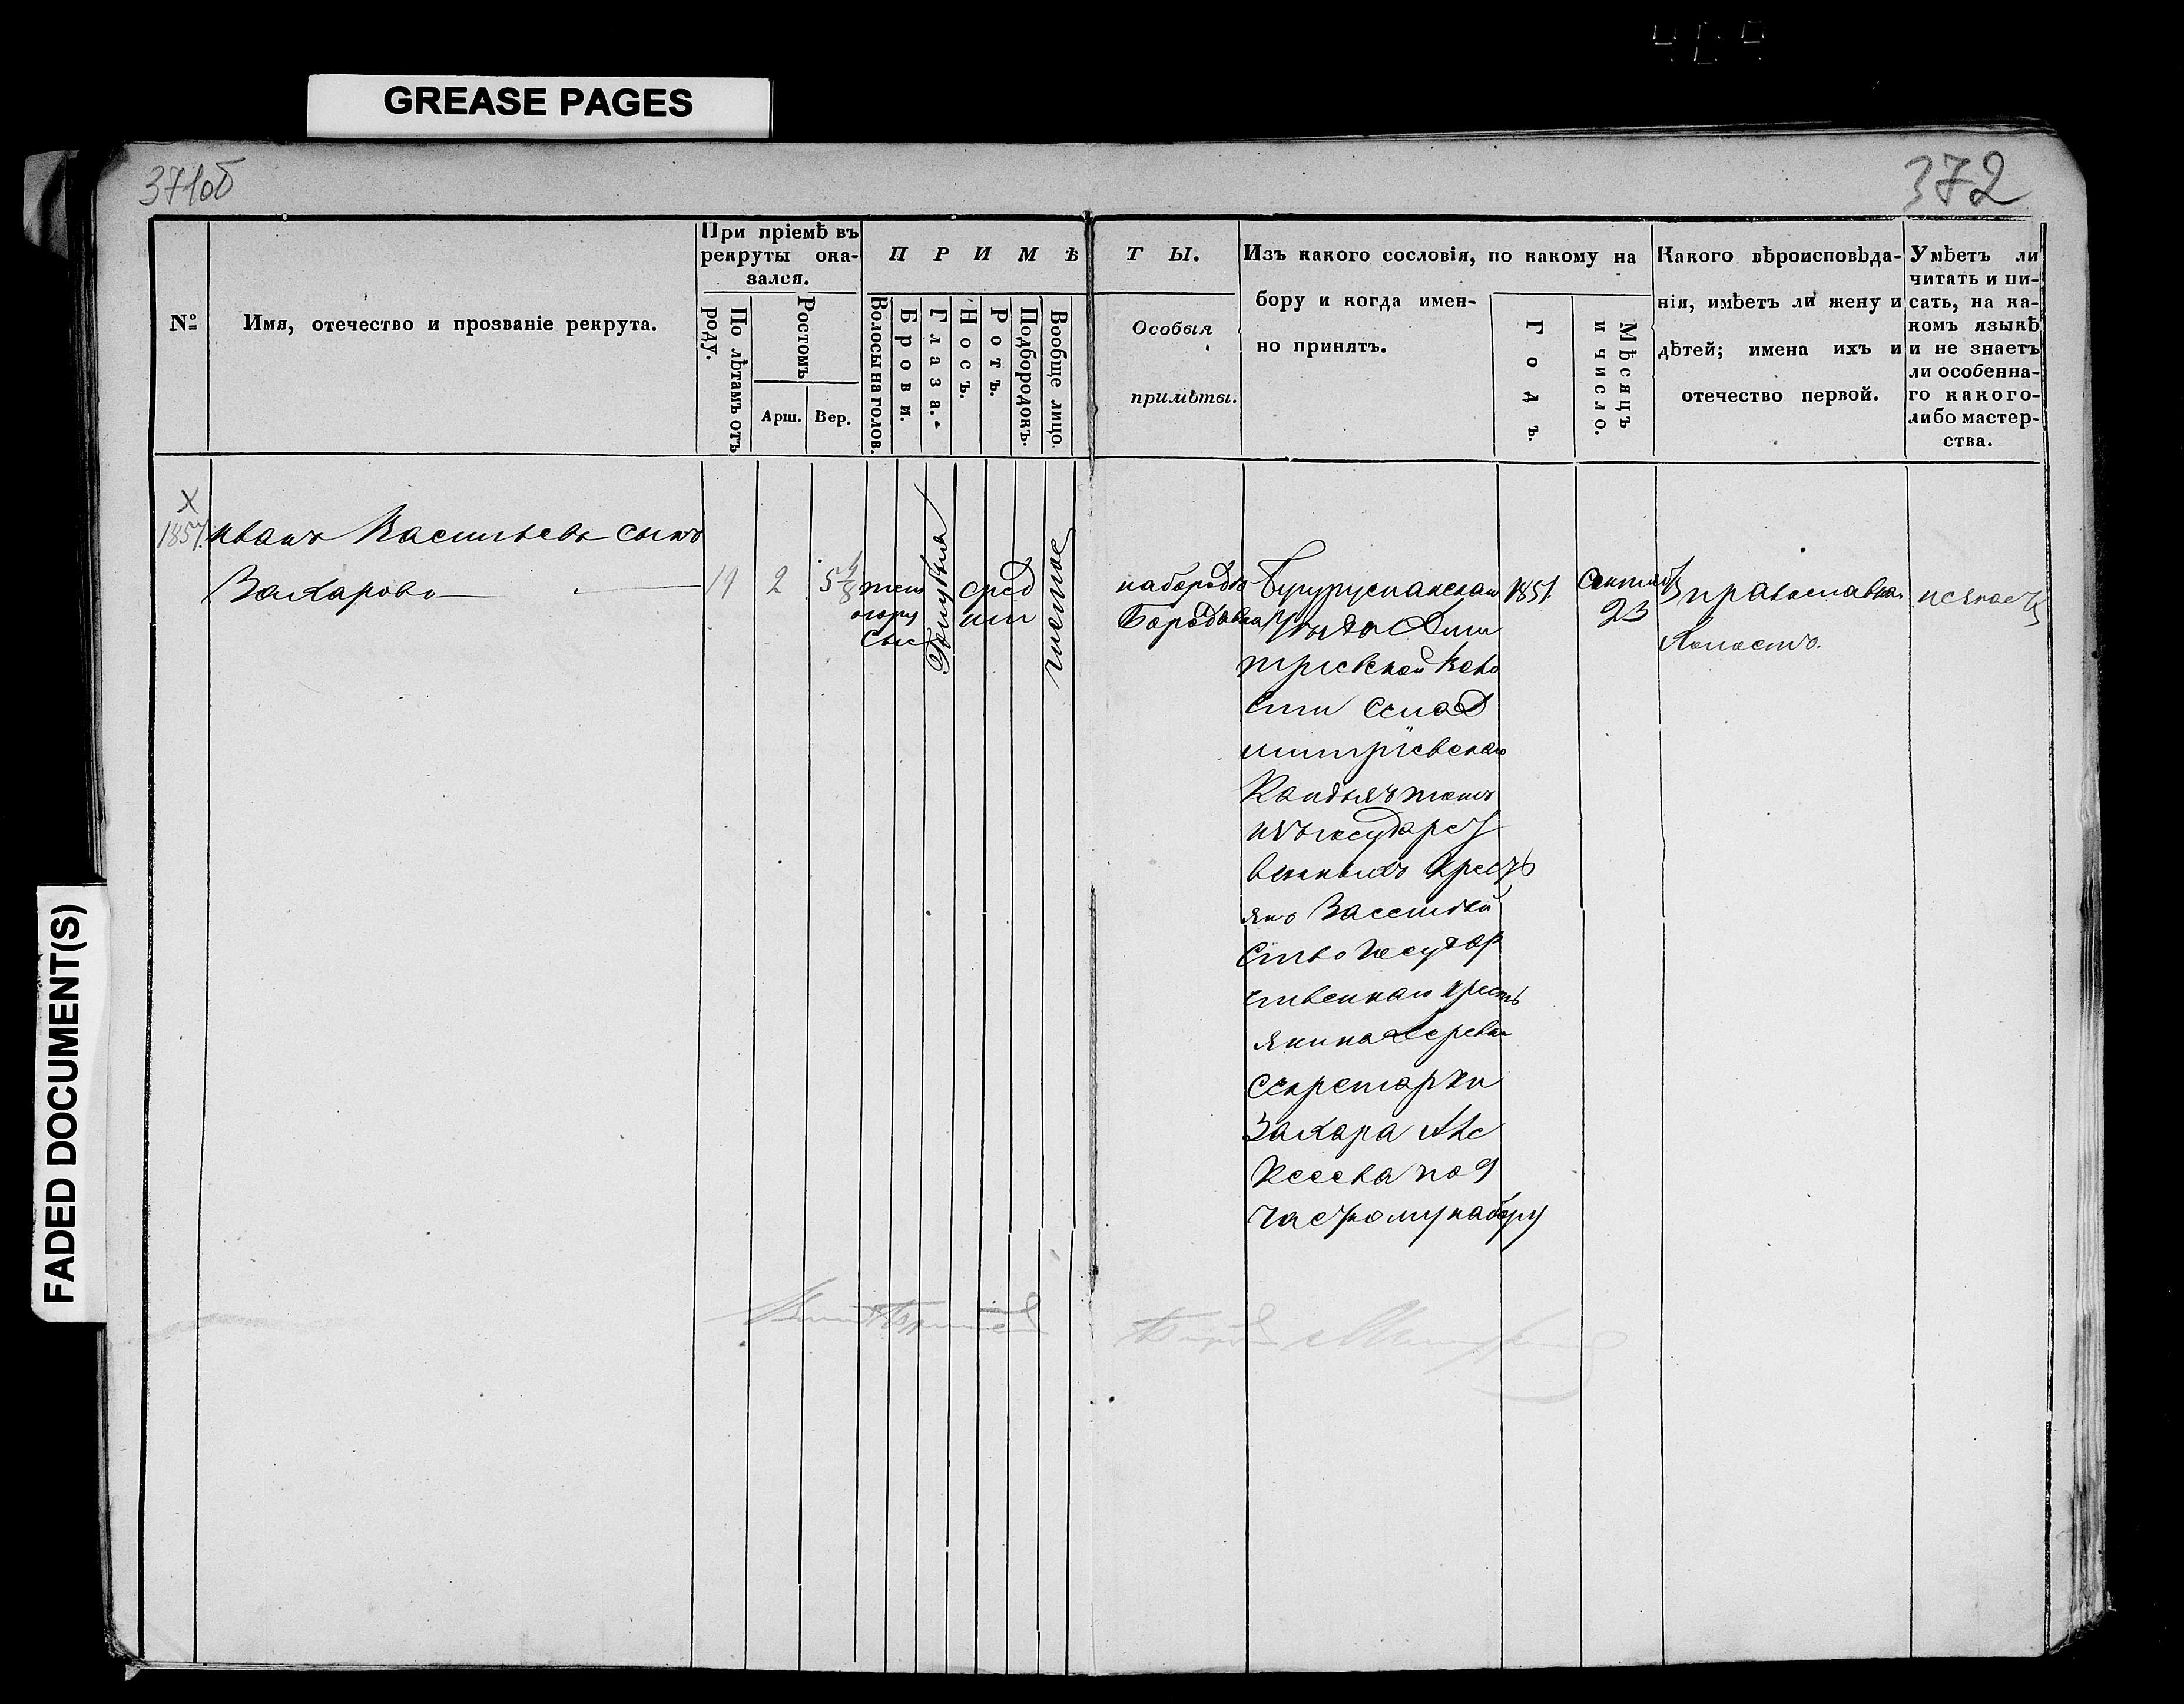 GREASE PAGES
371об
372
№
Имя, отечество и прозваніе рекрута.
При пріемѣ въ
рекруты ока-
зался.
По лѣтамъ отъ
роду.
Ростомъ
Арш.
Вер.
П Р И М Ѣ
Волосы на голов.
Брови.
Глаза.
Носъ.
Ротъ.
Подбородокъ.
Вообще лицо.
Т Ы.
Особыя
примѣты.
Изъ какого сословія, по какому на
бору и когда имен-
но принятъ.
Годъ.
Мѣсяцъ
и число.
Какого вѣроисповѣда-
нія, имѣетъ ли жену и
дѣтей; имена ихъ и
отечество первой.
Умѣетъ ли
читать и пи-
сать, на ка-
комъ языкѣ
и не знаетъ
ли особенна-
го какого-
либо мастер-
ства.
X
1857.
Иванъ Васильевъ сынъ
Захаровъ
19
2
5
темн
орус
сые
Голубыя
сред
ніи
чистое
на бородѣ
Бородавка
Бугурусланскаго
уѣзда Дми
тріевской воло
сти села Д
митріевскаго
Кандызъ тожъ
изъ государст
венныхъ кресть
янъ За семей
ство государ
ственнаго кресть
янина деревни
Секретарки
Захара Але
ксеева по 9
частному набору
1851.
Сентяб
23
православна
Холостъ.
FADED DOCUMENT(S)